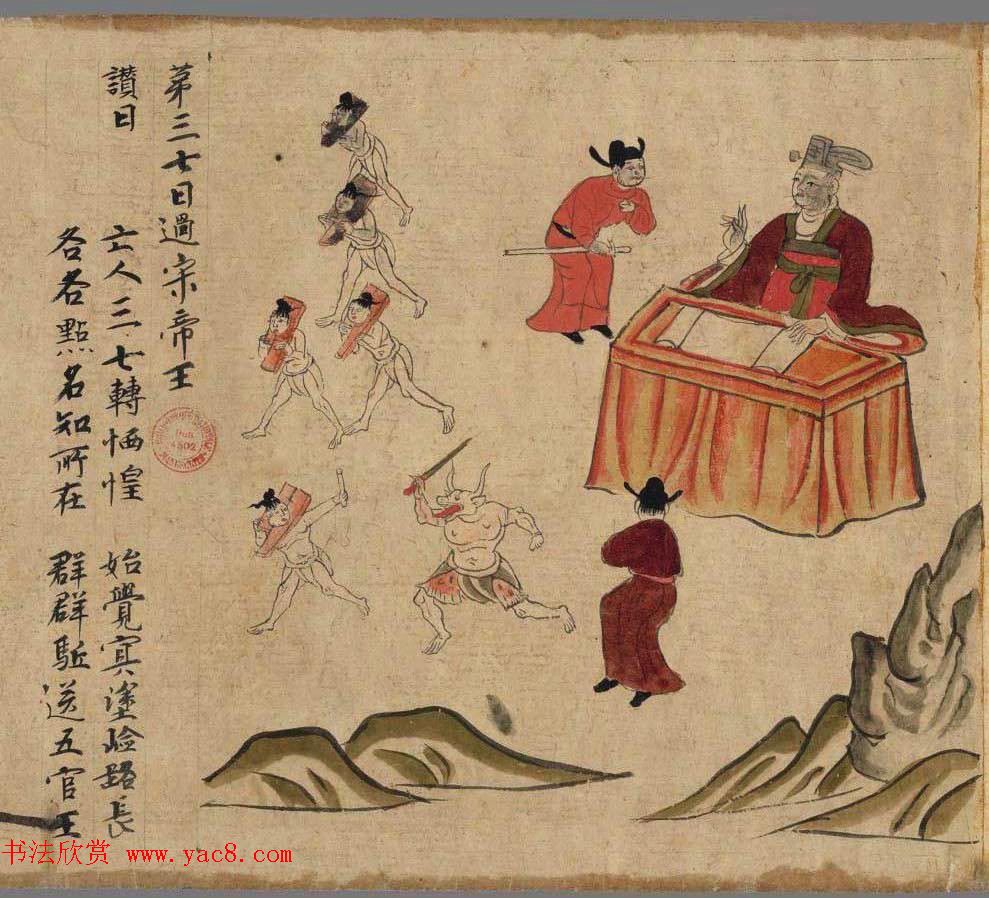 第三七日過宋帝王
讃曰
亡人三七轉恓惶 始覺冥塗嶮路長
各各點名知所在 群群駈送五官王
書法欣赏 www.yac8.com